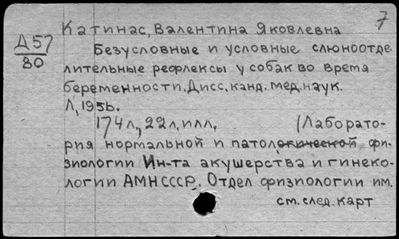 7
Катинас, Валентина Яковлевна
Д57
80
Безусловные и условные слюноотде
лительные рефлексы у собак во время
беременности. Дисс. канд. мед. наук.
Л, 195ь.
174л, 22л, илл. (Лаборато-
рия нормальной и патологической фи-
зиологии Ин-та акушерства и гинеко-
логии АМНСССР. Отдел физиологии им.
см. след. карт